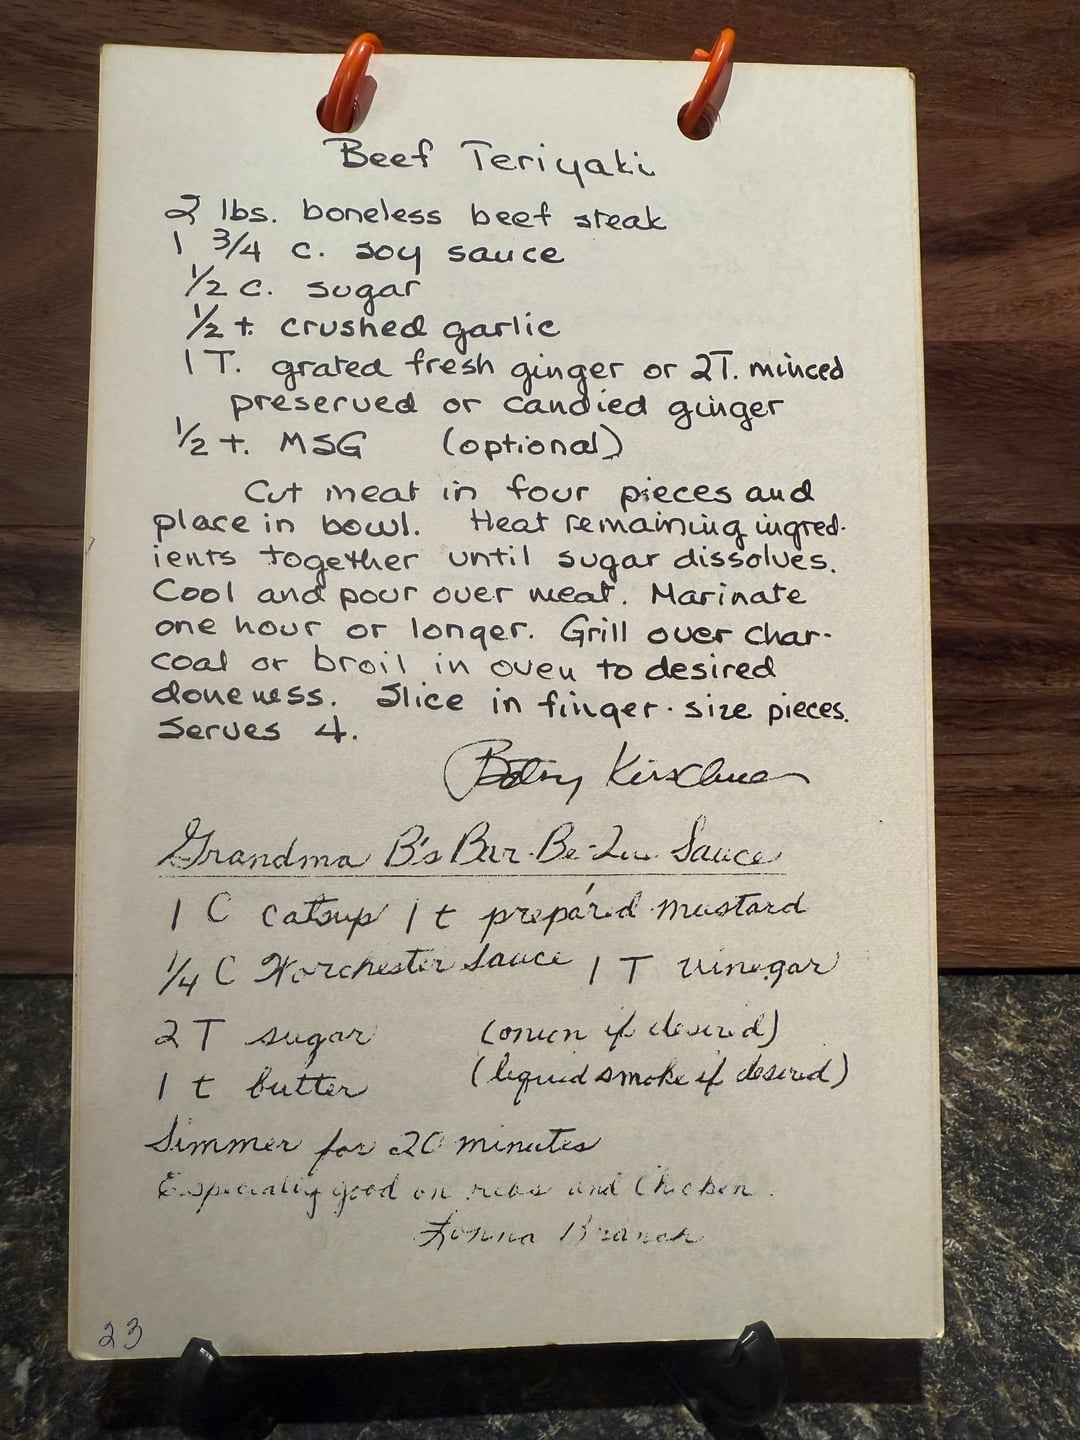 Beef Teriyaki
2 lbs. boneless beef steak
1 3/4 c. soy sauce
1/2 c. sugar
1/2 t. crushed garlic
1 T. grated fresh ginger or 2T. minced
preserved or candied ginger
1/2 t. MSG (optional)
Cut meat in four pieces and
place in bowl. Heat remaining ingred-
ients together until sugar dissolves.
Cool and pour over meat. Marinate
one hour or longer. Grill over char-
coal or broil in oven to desired
doneness. Slice in finger-size pieces.
Serves 4.
Betsy
Grandma B's Bar-Be-Que Sauce
1 C catsup 1 t prepared mustard
1/4 C Worchester sauce 1 T vinegar
2 T sugar (onion if desired)
1 t butter (liquid smoke if desired)
Simmer for 20 minutes
Especially good on ribs and Chicken.
Branch
23